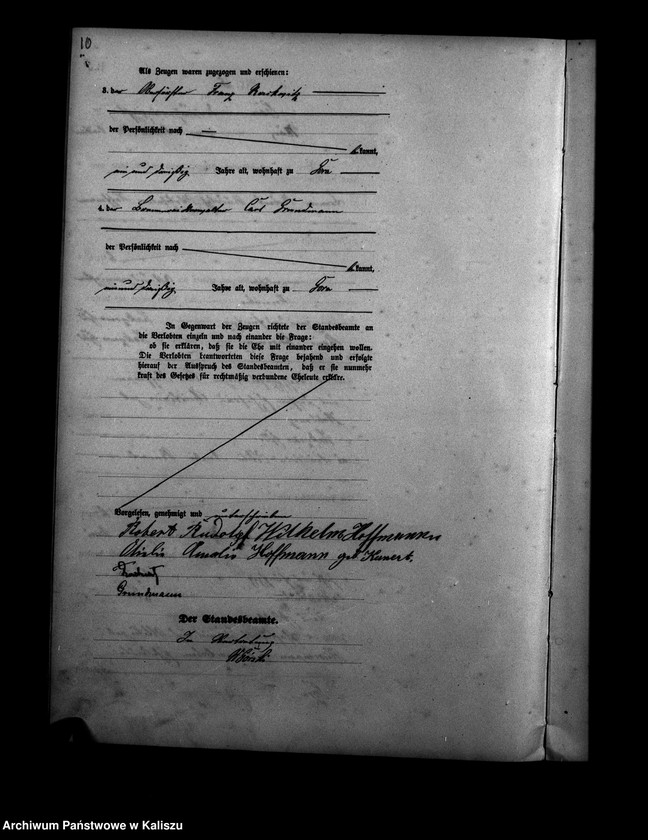 10
Als Zeugen waren zugezogen und erschienen:
3. der Franz
der Persönlichkeit nach
kannt,
ein und dreißig Jahre alt, wohnhaft zu
4. der Carl Grundmann
der Persönlichkeit nach
kannt,
ein und dreißig Jahre alt, wohnhaft zu
In Gegenwart der Zeugen richtete der Standesbeamte an
die Verlobten einzeln und nach einander die Frage:
ob sie erklären, daß sie die Ehe mit einander eingehen wollen.
Die Verlobten beantworteten diese Frage bejahend und erfolgte
hierauf der Ausspruch des Standesbeamten, daß er sie nunmehr
kraft des Gesetzes für rechtmäßig verbundene Eheleute erkläre.
Vorgelesen, genehmigt und unterschrieben
Robert Rudolf Wilhelm Hoffmann
Amalie Hoffmann geb.
Grundmann
Der Standesbeamte.
In Vertretung
Archiwum Państwowe w Kaliszu